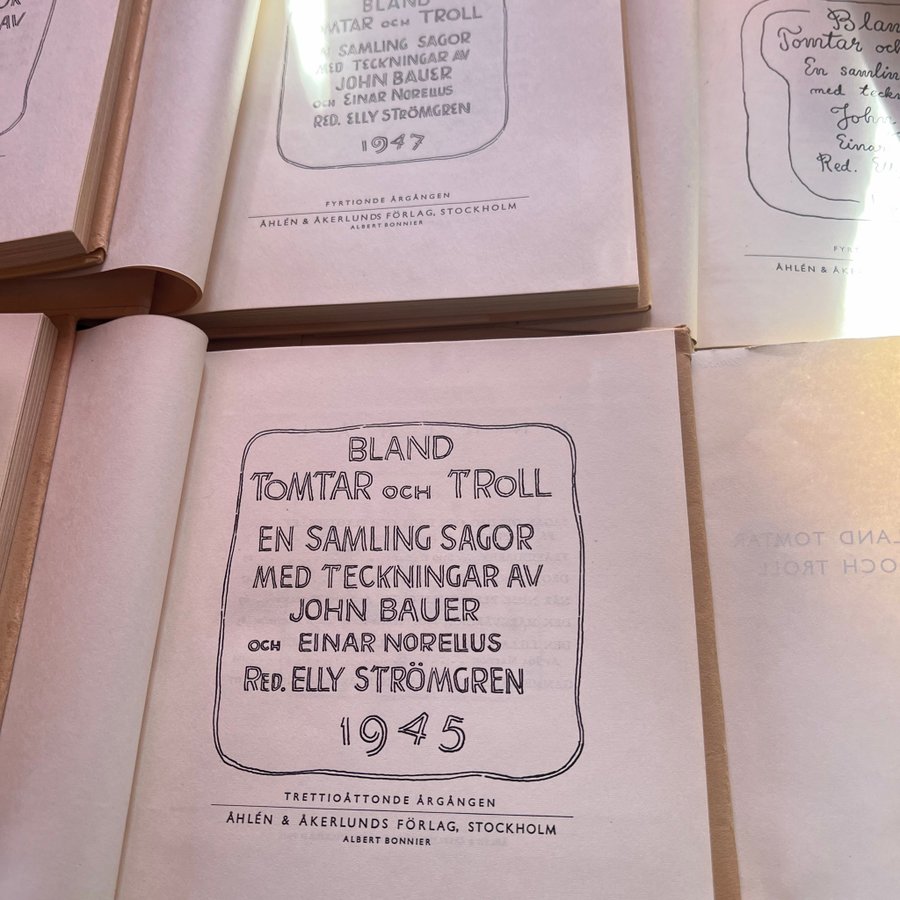 AV
BLAND
TOMTAR OCH TROLL
EN SAMLING SAGOR
MED TECKNINGAR AV
JOHN BAUER
OCH EINAR NORELIUS
RED. ELLY STRÖMGREN
1947
FYRTIONDE ÅRGÅNGEN
ÅHLÉN & ÅKERLUNDS FÖRLAG, STOCKHOLM
ALBERT BONNIER
Blan
Tomtar oc
En samlin
med teckn
John
Einar
Red. El
FYRT
ÅHLÉN & ÅK
BLAND
TOMTAR OCH TROLL
EN SAMLING SAGOR
MED TECKNINGAR AV
JOHN BAUER
OCH EINAR NORELIUS
RED. ELLY STRÖMGREN
1945
TRETTIOÅTTONDE ÅRGÅNGEN
ÅHLÉN & ÅKERLUNDS FÖRLAG, STOCKHOLM
ALBERT BONNIER
LAND TOMTAR
OCH TROLL